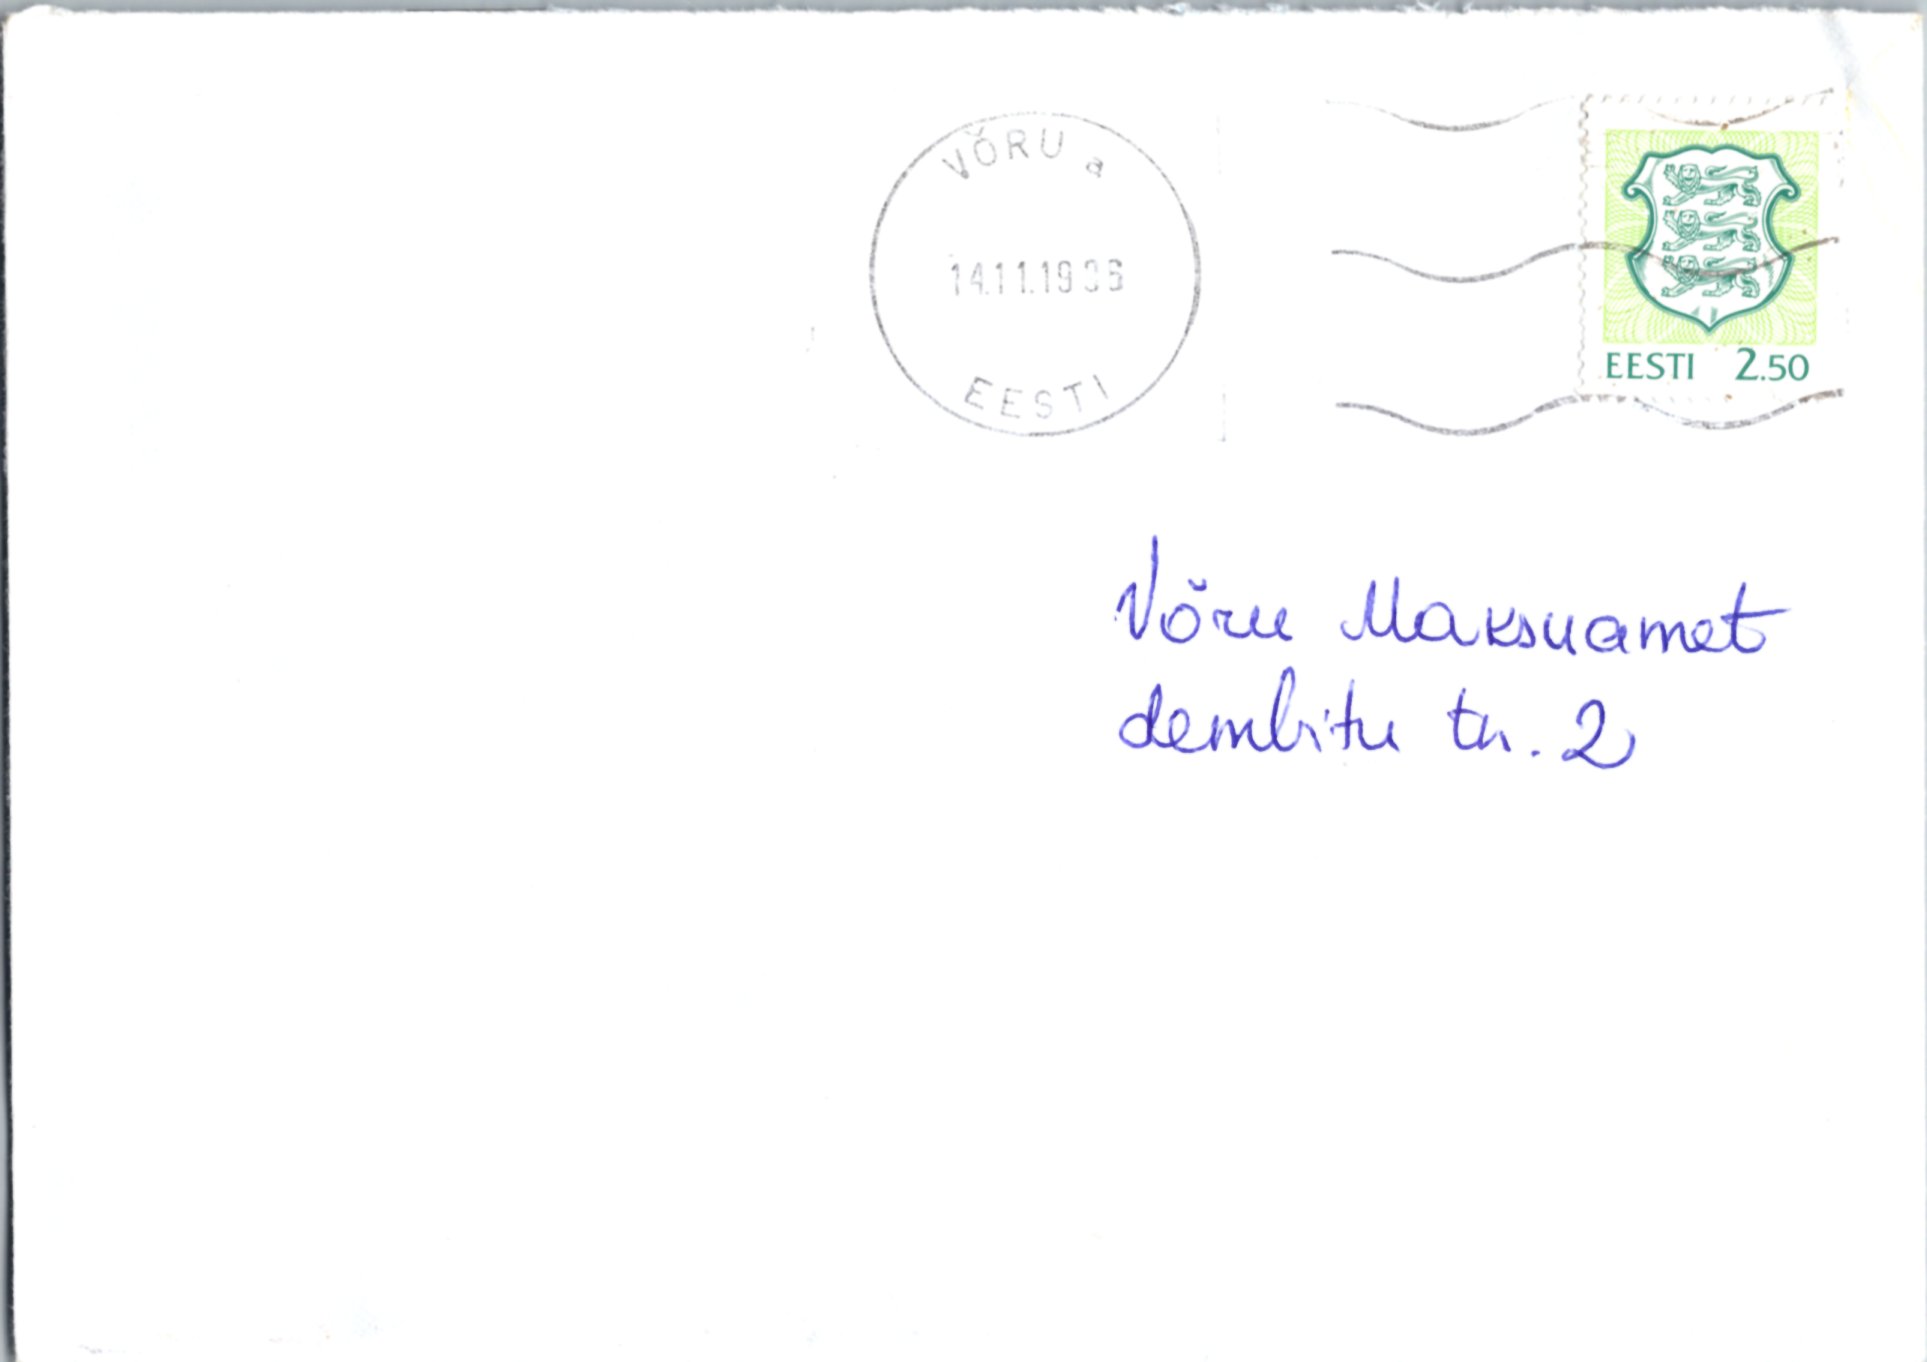 VÕRU a
14.11.1996
EESTI
EESTI 2.50
Võru Maksuamet
Lembitu tn. 2